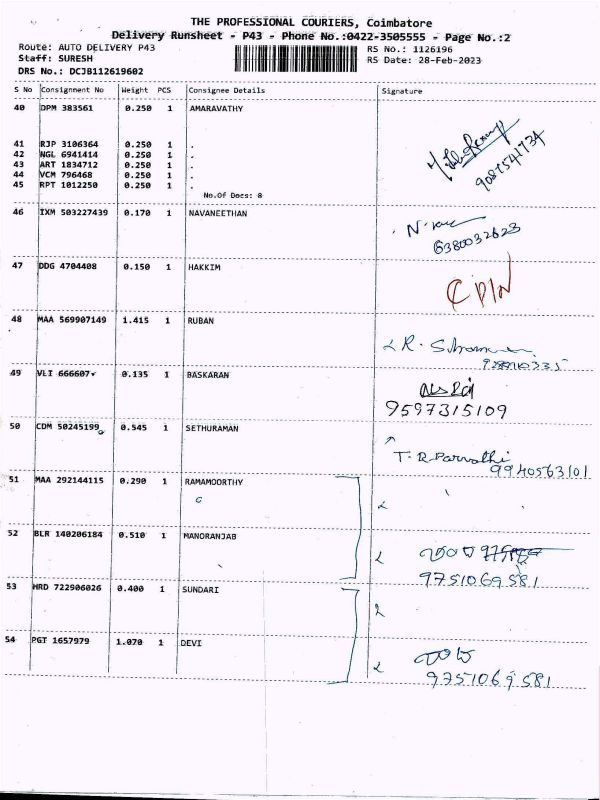 THE PROFESSIONAL COURIERS, Coimbatore
Delivery Runsheet - P43 - Phone No.:0422-3505555 - Page No.:2
Route: AUTO DELIVERY P43 RS No.: 1126196
Staff: SURESH RS Date: 28-Feb-2023
DRS No.: DCJB112619602
S No Consignment No Weight PCS Consignee Details Signature
40 DPM 383561 0.250 1 AMARAVATHY
41 RJP 3106364 0.250 1 .
42 NGL 6941414 0.250 1 .
43 ART 1834712 0.250 1 .
44 VCM 796468 0.250 1 .
45 RPT 1012250 0.250 1 .
9087541734
No.Of Docs: 8
46 IXM 503227439 0.170 1 NAVANEETHAN
6380032623
47 DDG 4704408 0.150 1 HAKKIM
48 MAA 569907149 1.415 1 RUBAN
49 VLI 666607 0.135 1 BASKARAN
9597315109
50 CDM 50245199 0.545 1 SETHURAMAN
T. R. Parvathi
9940563101
51 MAA 292144115 0.290 1 RAMAMOORTHY
52 BLR 140206184 0.510 1 MANORANJAB
9751069581
53 HRD 722906026 0.400 1 SUNDARI
54 PGT 1657979 1.070 1 DEVI
9751069581